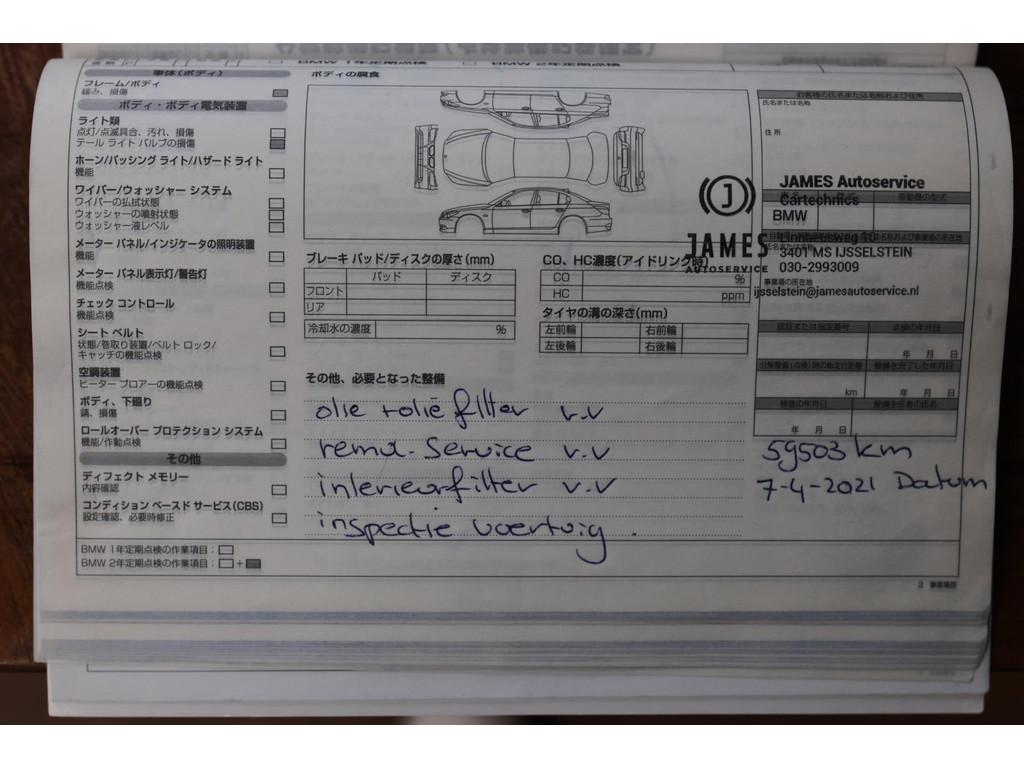 BMW 1年定期点検 BMW 2年定期点検
車体(ボディ)
フレーム/ボディ
緩み、損傷
ボディ・ボディ電気装置
ライト類
点灯/点滅具合、汚れ、損傷
テール ライト バルブの損傷
ホーン/パッシング ライト/ハザード ライト
機能
ワイパー/ウォッシャー システム
ワイパーの払拭状態
ウォッシャーの噴射状態
ウォッシャー液レベル
メーター パネル/インジケータの照明装置
機能
メーター パネル表示灯/警告灯
機能点検
チェック コントロール
機能点検
シート ベルト
状態/巻取り装置/ベルト ロック/
キャッチの機能点検
空調装置
ヒーター ブロアーの機能点検
ボディ、下廻り
錆、損傷
ロールオーバー プロテクション システム
機能/作動点検
その他
ディフェクト メモリー
内容確認
コンディション ベースド サービス(CBS)
設定確認、必要時修正
BMW 1年定期点検の作業項目：
BMW 2年定期点検の作業項目： +
ボディの腐食
ブレーキ パッド/ディスクの厚さ(mm)
パッド ディスク
フロント
リア
冷却水の濃度 %
CO、HC濃度(アイドリング時)
CO %
HC ppm
タイヤの溝の深さ(mm)
左前輪 右前輪
左後輪 右後輪
その他、必要となった整備
olie + olie filter v.v
remvl. Service v.v
interieurfilter v.v
inspectie voertuig .
お客様の氏名または名称および住所
氏名または名称
住 所
JAMES Autoservice
Cartechnics
BMW
原動機の型式
Linnaeusweg 10
3401 MS IJSSELSTEIN
030-2993009
事業場の所在地
ijsselstein@jamesautoservice.nl
JAMES
AUTOSERVICE
認証または指定番号 点検の年月日
年 月 日
整備を完了した年月日
km 年 月 日
検査の年月日 整備主任者の氏名
年 月 日
59503 km
7-4-2021 Datum